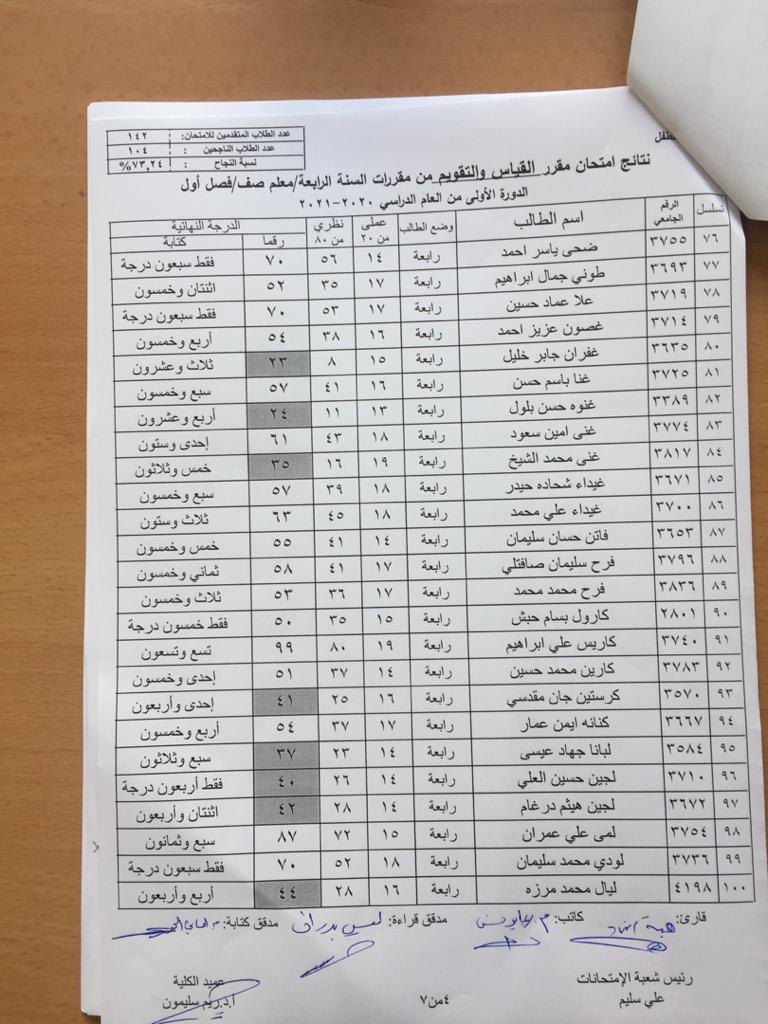 عدد الطلاب المتقدمين للامتحان: ١٤٢
عدد الطلاب الناجحين : ١٠٤
نسبة النجاح : ٧٣,٢٤%
نتائج امتحان مقرر القياس والتقويم من مقررات السنة الرابعة/معلم صف/فصل أول
الدورة الأولى من العام الدراسي ٢٠٢٠-٢٠٢١
تسلسل الرقم الجامعي اسم الطالب وضع الطالب عملي من ٢٠ نظري من ٨٠ الدرجة النهائية رقما كتابة
٧٦ ٣٧٥٥ ضحى ياسر احمد رابعة ١٤ ٥٦ ٧٠ فقط سبعون درجة
٧٧ ٣٦٩٣ طوني جمال ابراهيم رابعة ١٧ ٣٥ ٥٢ اثنتان وخمسون
٧٨ ٣٧١٩ علا عماد حسين رابعة ١٧ ٥٣ ٧٠ فقط سبعون درجة
٧٩ ٣٧١٤ غصون عزيز احمد رابعة ١٦ ٣٨ ٥٤ أربع وخمسون
٨٠ ٣٦٣٥ غفران جابر خليل رابعة ١٥ ٨ ٢٣ ثلاث وعشرون
٨١ ٣٧٢٥ غنا باسم حسن رابعة ١٦ ٤١ ٥٧ سبع وخمسون
٨٢ ٣٣٨٩ غنوه حسن بلول رابعة ١٣ ١١ ٢٤ أربع وعشرون
٨٣ ٣٧٧٤ غنى امين سعود رابعة ١٨ ٤٣ ٦١ إحدى وستون
٨٤ ٣٨١٧ غنى محمد الشيخ رابعة ١٩ ١٦ ٣٥ خمس وثلاثون
٨٥ ٣٦٧١ غيداء شحاده حيدر رابعة ١٨ ٣٩ ٥٧ سبع وخمسون
٨٦ ٣٧٠٠ غيداء علي محمد رابعة ١٨ ٤٥ ٦٣ ثلاث وستون
٨٧ ٣٦٥٣ فاتن حسان سليمان رابعة ١٤ ٤١ ٥٥ خمس وخمسون
٨٨ ٣٧٩٦ فرح سليمان صافتلي رابعة ١٧ ٤١ ٥٨ ثماني وخمسون
٨٩ ٣٨٣٦ فرح محمد محمد رابعة ١٧ ٣٦ ٥٣ ثلاث وخمسون
٩٠ ٢٨٠١ كارول بسام حبش رابعة ١٥ ٣٥ ٥٠ فقط خمسون درجة
٩١ ٣٧٤٠ كاريس علي ابراهيم رابعة ١٩ ٨٠ ٩٩ تسع وتسعون
٩٢ ٣٧٨٣ كارين محمد حسين رابعة ١٤ ٣٧ ٥١ إحدى وخمسون
٩٣ ٣٥٧٠ كرستين جان مقدسي رابعة ١٦ ٢٥ ٤١ إحدى وأربعون
٩٤ ٣٦٦٧ كنانه ايمن عمار رابعة ١٧ ٣٧ ٥٤ أربع وخمسون
٩٥ ٣٥٨٤ لبانا جهاد عيسى رابعة ١٤ ٢٣ ٣٧ سبع وثلاثون
٩٦ ٣٧١٠ لجين حسين العلي رابعة ١٤ ٢٦ ٤٠ فقط أربعون درجة
٩٧ ٣٦٧٢ لجين هيثم درغام رابعة ١٤ ٢٨ ٤٢ اثنتان وأربعون
٩٨ ٣٧٥٤ لمى علي عمران رابعة ١٥ ٧٢ ٨٧ سبع وثمانون
٩٩ ٣٧٣٦ لودي محمد سليمان رابعة ١٨ ٥٢ ٧٠ فقط سبعون درجة
١٠٠ ٤١٩٨ ليال محمد مرزه رابعة ١٦ ٢٨ ٤٤ أربع وأربعون
قارئ: كاتب: مدقق قراءة: مدقق كتابة:
رئيس شعبة الإمتحانات عميد الكلية
علي سليم ٤من٧ أ.د.ريم سليمون